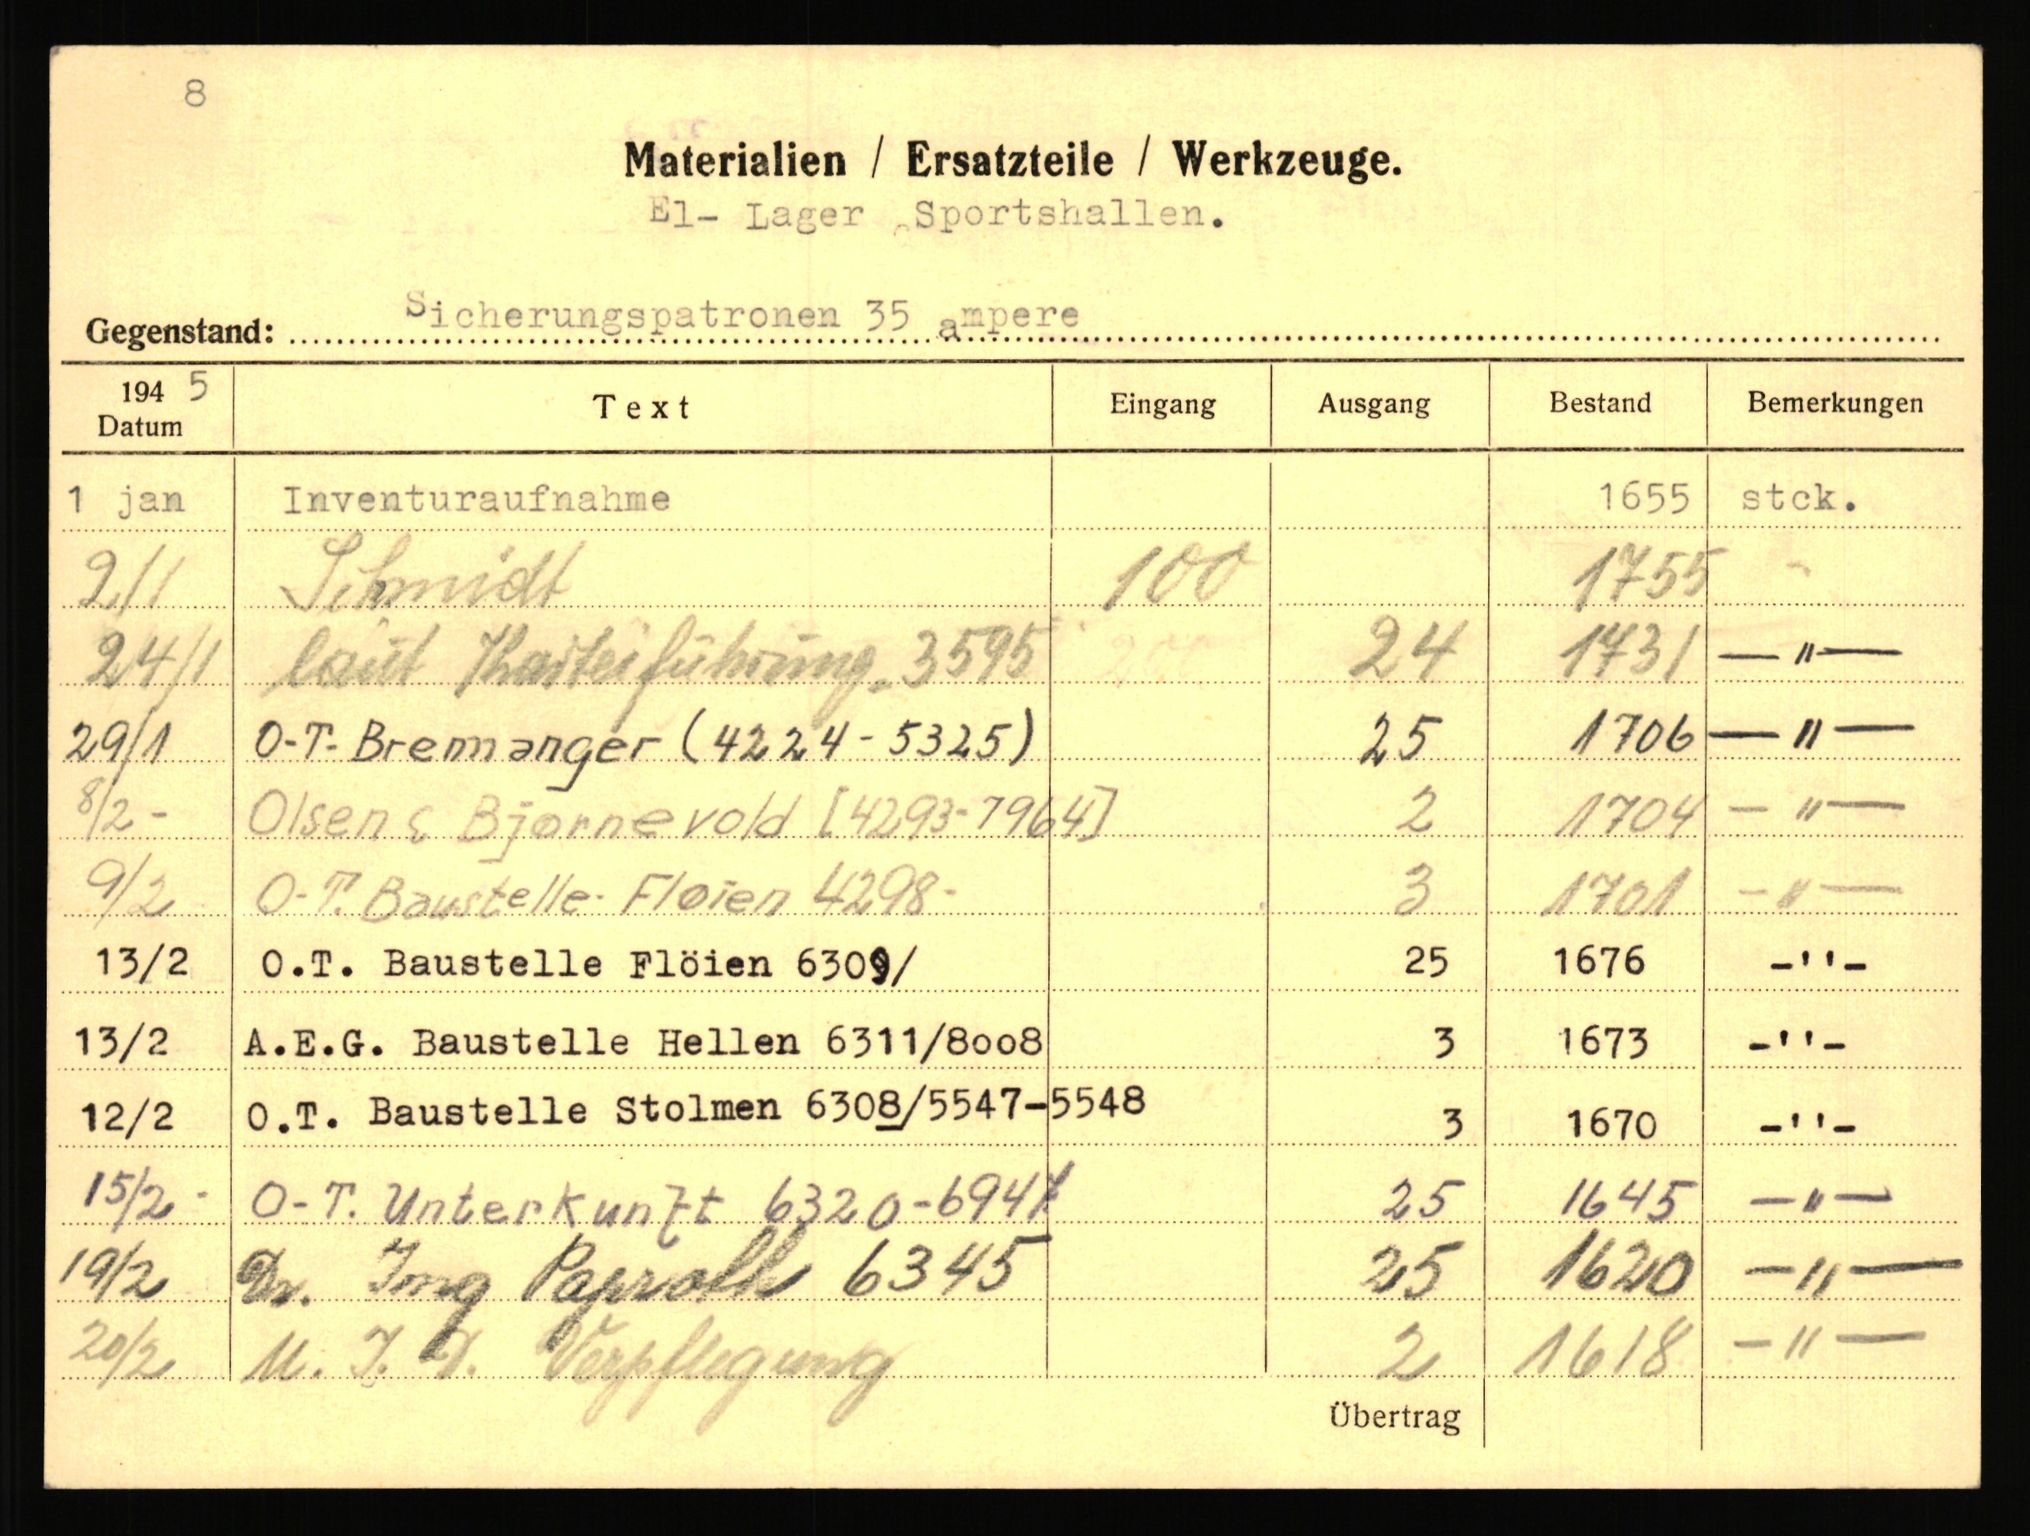 8
Materialien / Ersatzteile / Werkzeuge.
El- Lager Sportshallen.
Gegenstand: Sicherungspatronen 35 ampere
194 5 Datum Text Eingang Ausgang Bestand Bemerkungen
1 jan Inventuraufnahme 1655 stck.
2/1 Schmidt 100 1755 "
24/1 laut Karteiführung. 3595 24 1731 — " —
29/1 O-T- Bremanger (4224 - 5325) 25 1706 — " —
8/2 - Olsen & Bjørnevold [4293-7964] 2 1704 — " —
9/2 O-T. Baustelle - Fløien 4298- 3 1701 — " —
13/2 O.T. Baustelle Flöien 6309/ 25 1676 -''-
13/2 A.E.G. Baustelle Hellen 6311/8oo8 3 1673 -''-
12/2 O.T. Baustelle Stolmen 6308/5547-5548 3 1670 -''-
15/2 - O-T. Unterkunft 6320-6941 25 1645 — " —
19/2 Dr. Ing Paproth 6345 25 1620 — " —
20/2 M. I. T. Verpflegung 2 1618 — " —
Übertrag